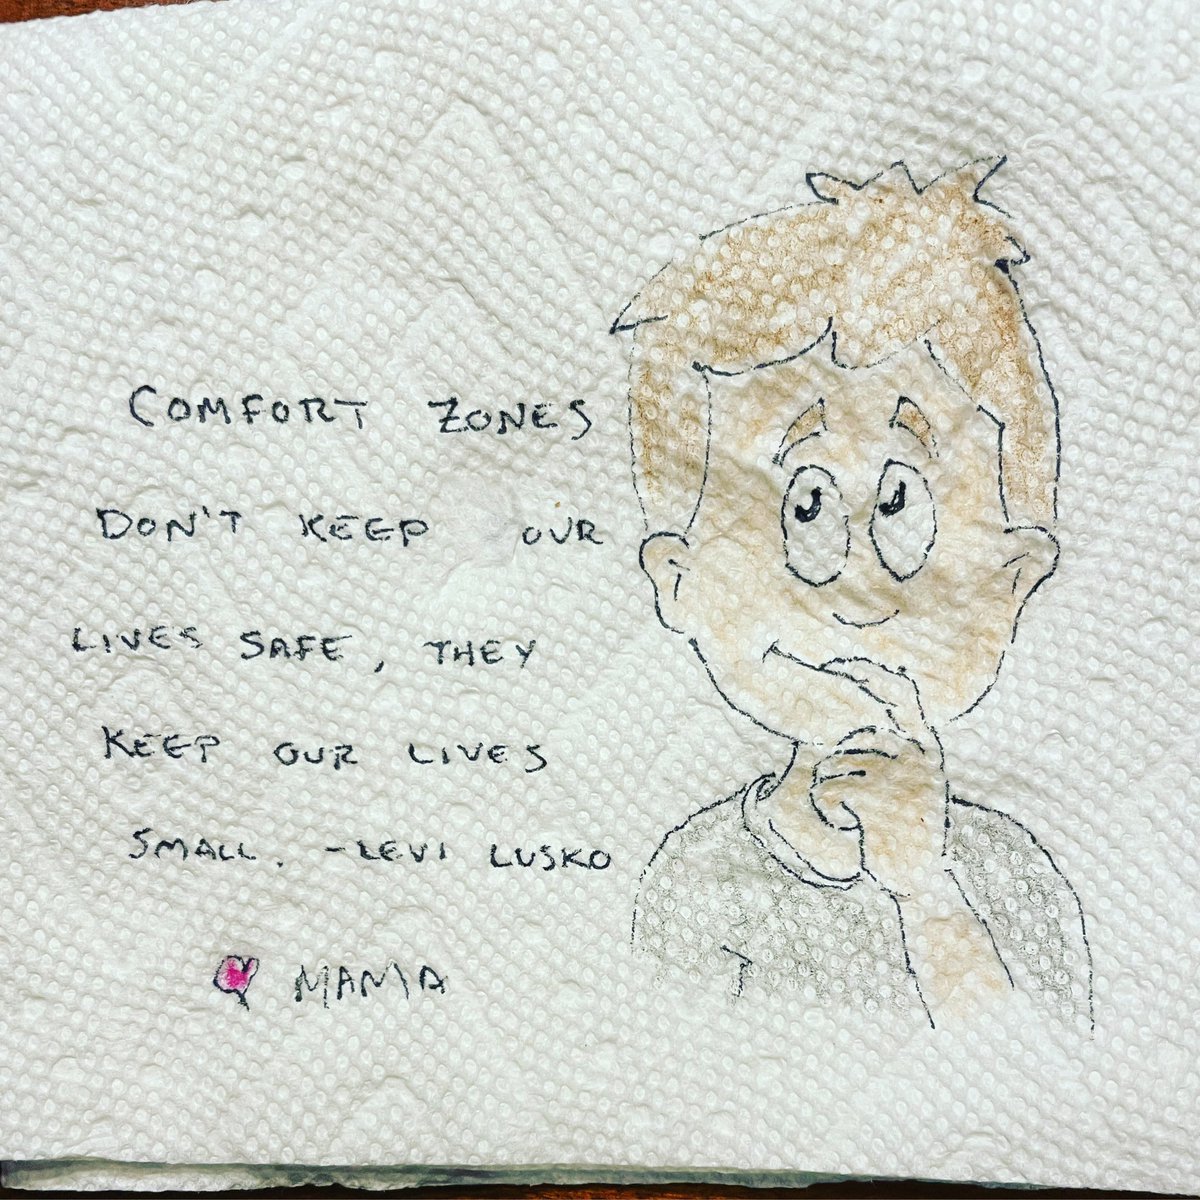 COMFORT ZONES
DON'T KEEP OUR
LIVES SAFE, THEY
KEEP OUR LIVES
SMALL. -LEVI LUSKO
♥ MAMA